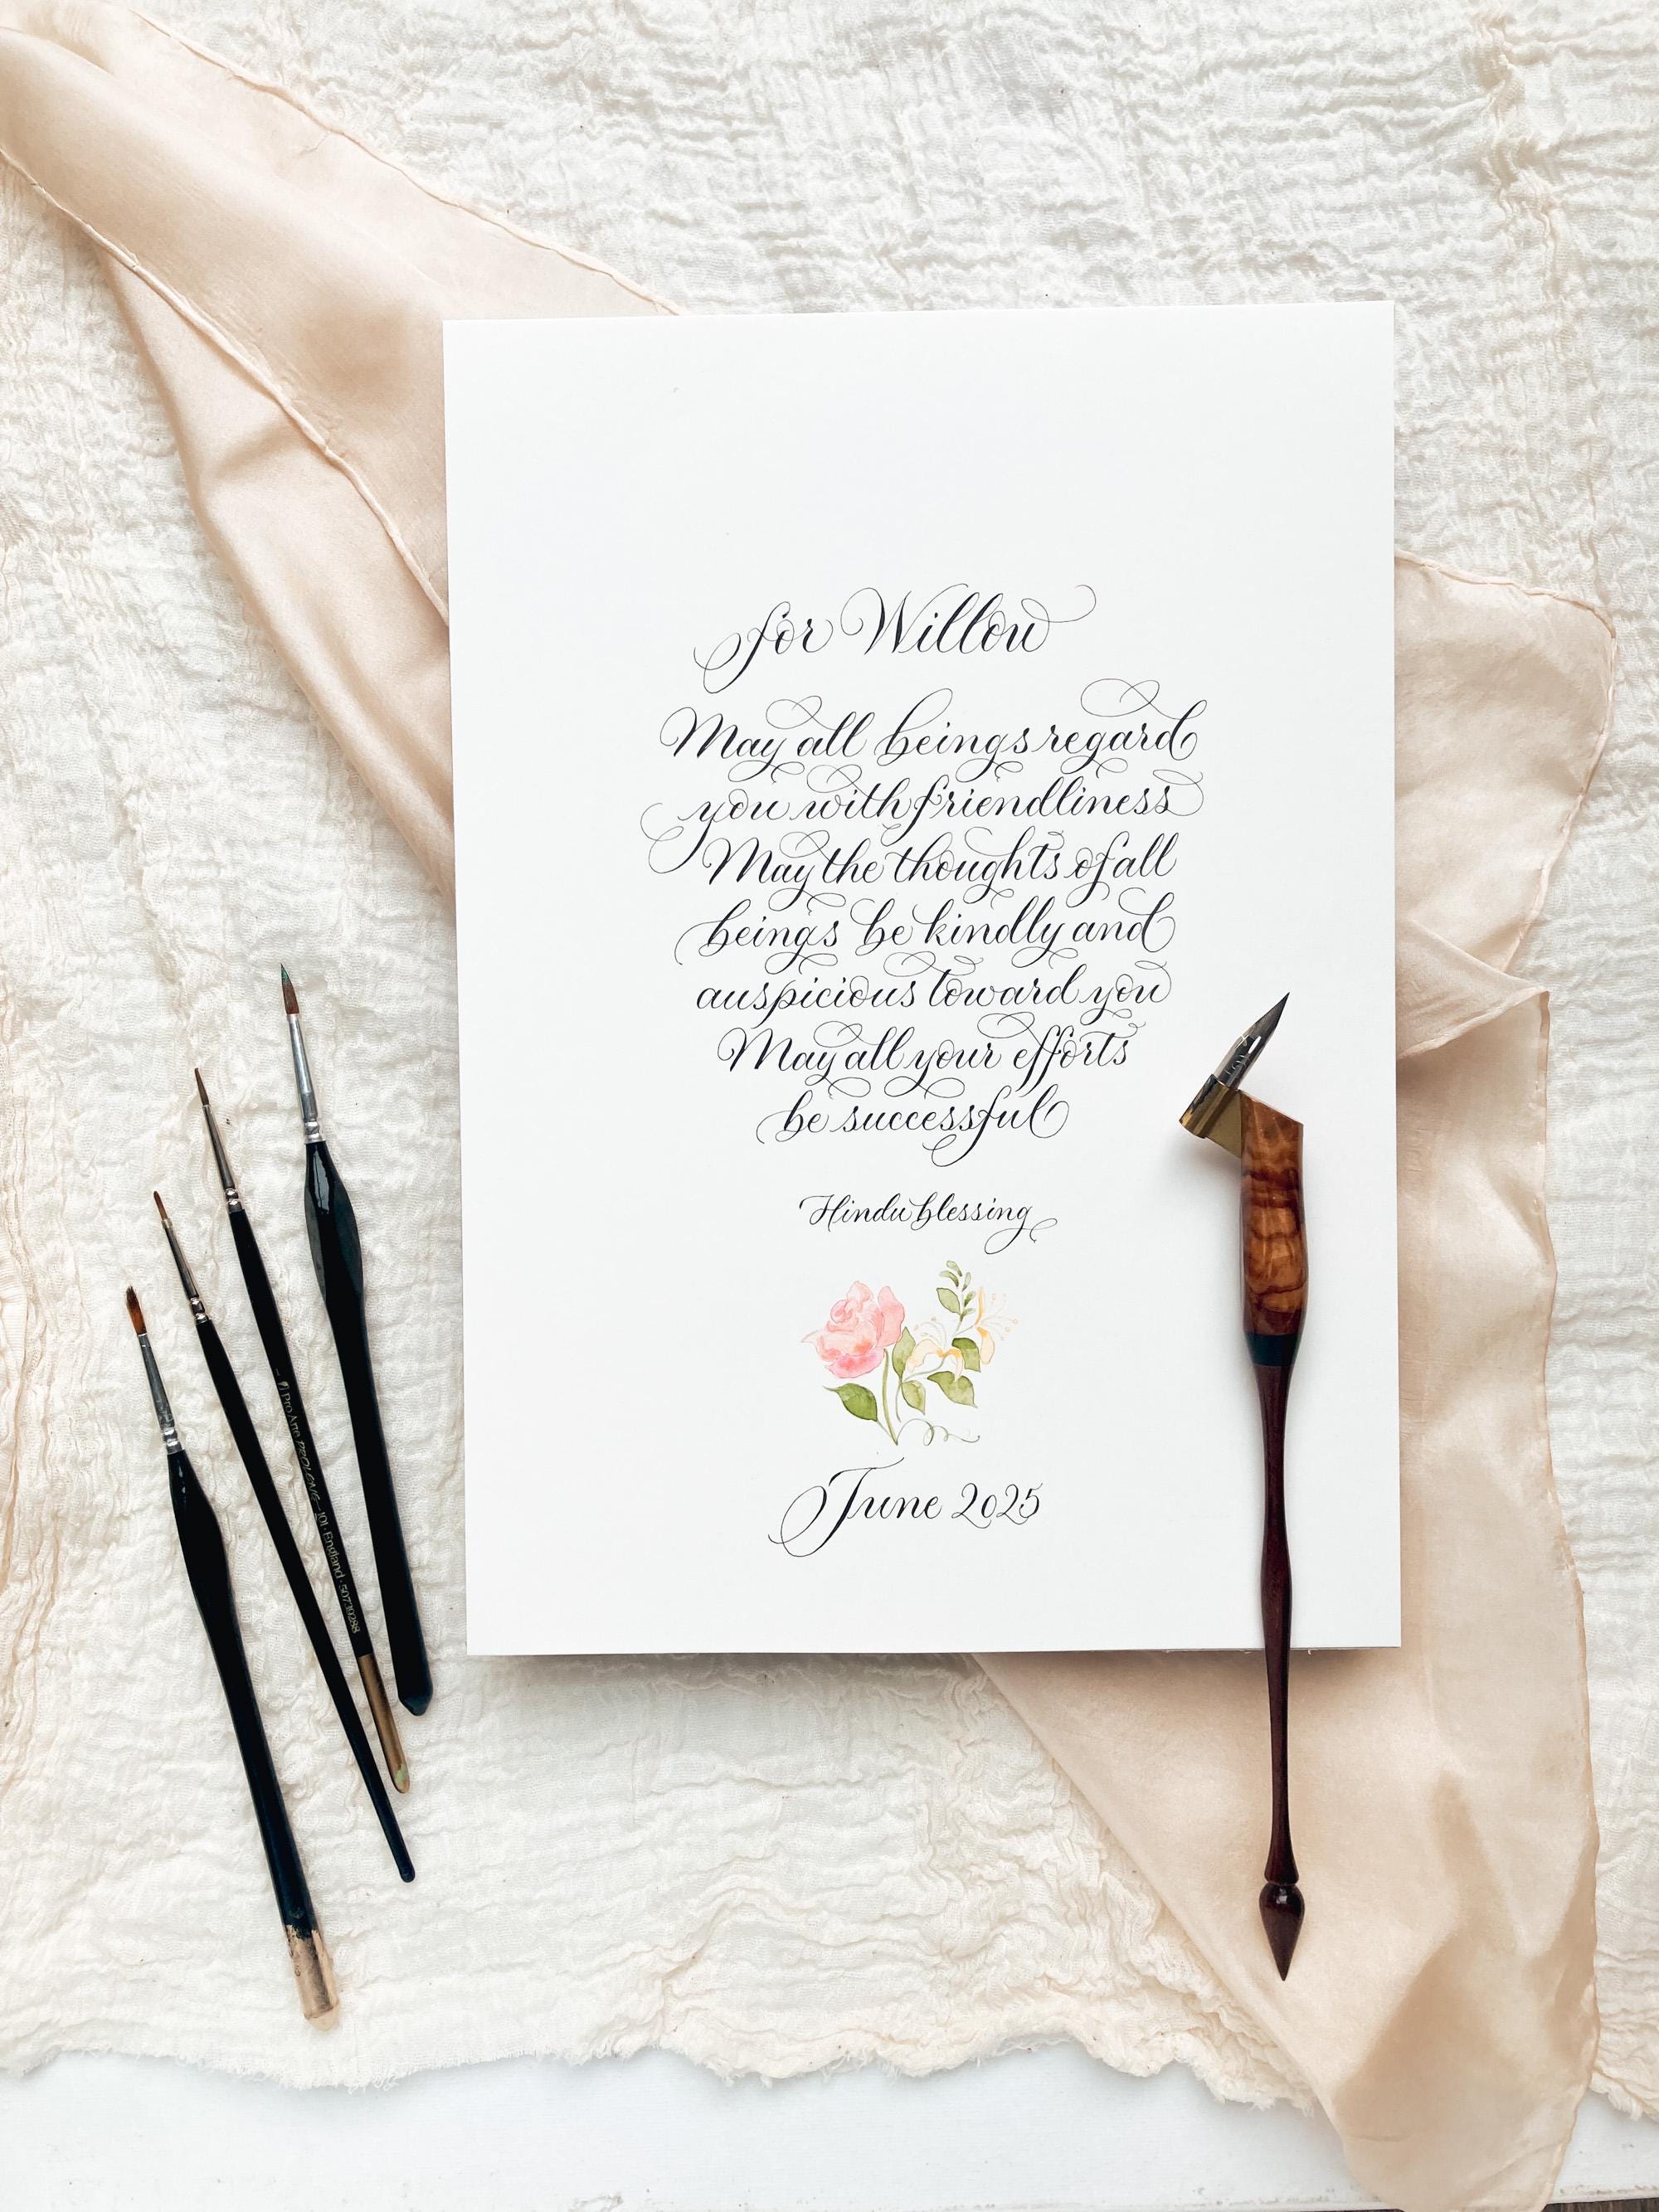 for Willow
May all beings regard
you with friendliness
May the thoughts of all
beings be kindly and
auspicious toward you
May all your efforts
be successful
Hindu blessing
June 2025
Pro Arte PROLENE - 101 - England - 50730288